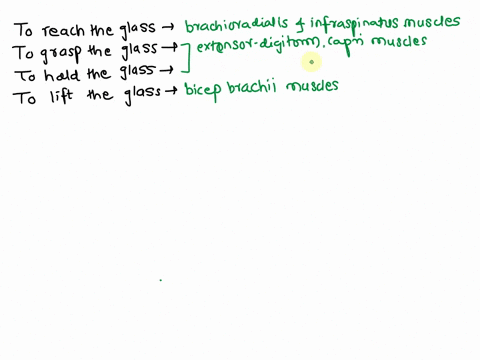 To reach the glass → brachioradialls & infraspinatus muscles
To grasp the glass → extensor-digitorm, capri muscles
To hold the glass →
To lift the glass → bicep brachii muscles